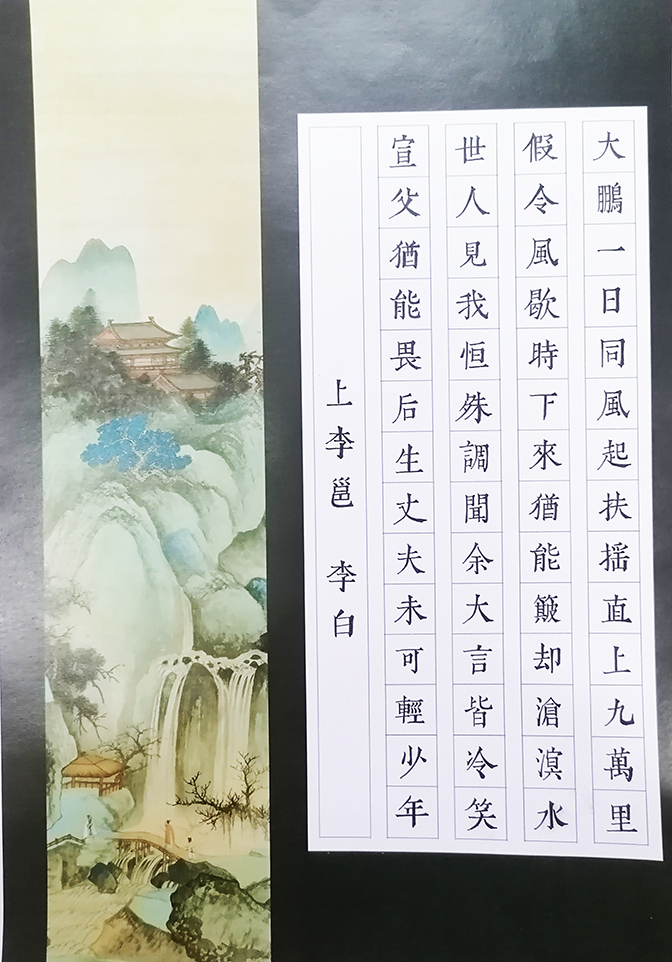 大鵬一日同風起扶摇直上九萬里
假令風歇時下來猶能簸却滄溟水
世人見我恒殊調聞余大言皆冷笑
宣父猶能畏后生丈夫未可輕少年
上李邕 李白